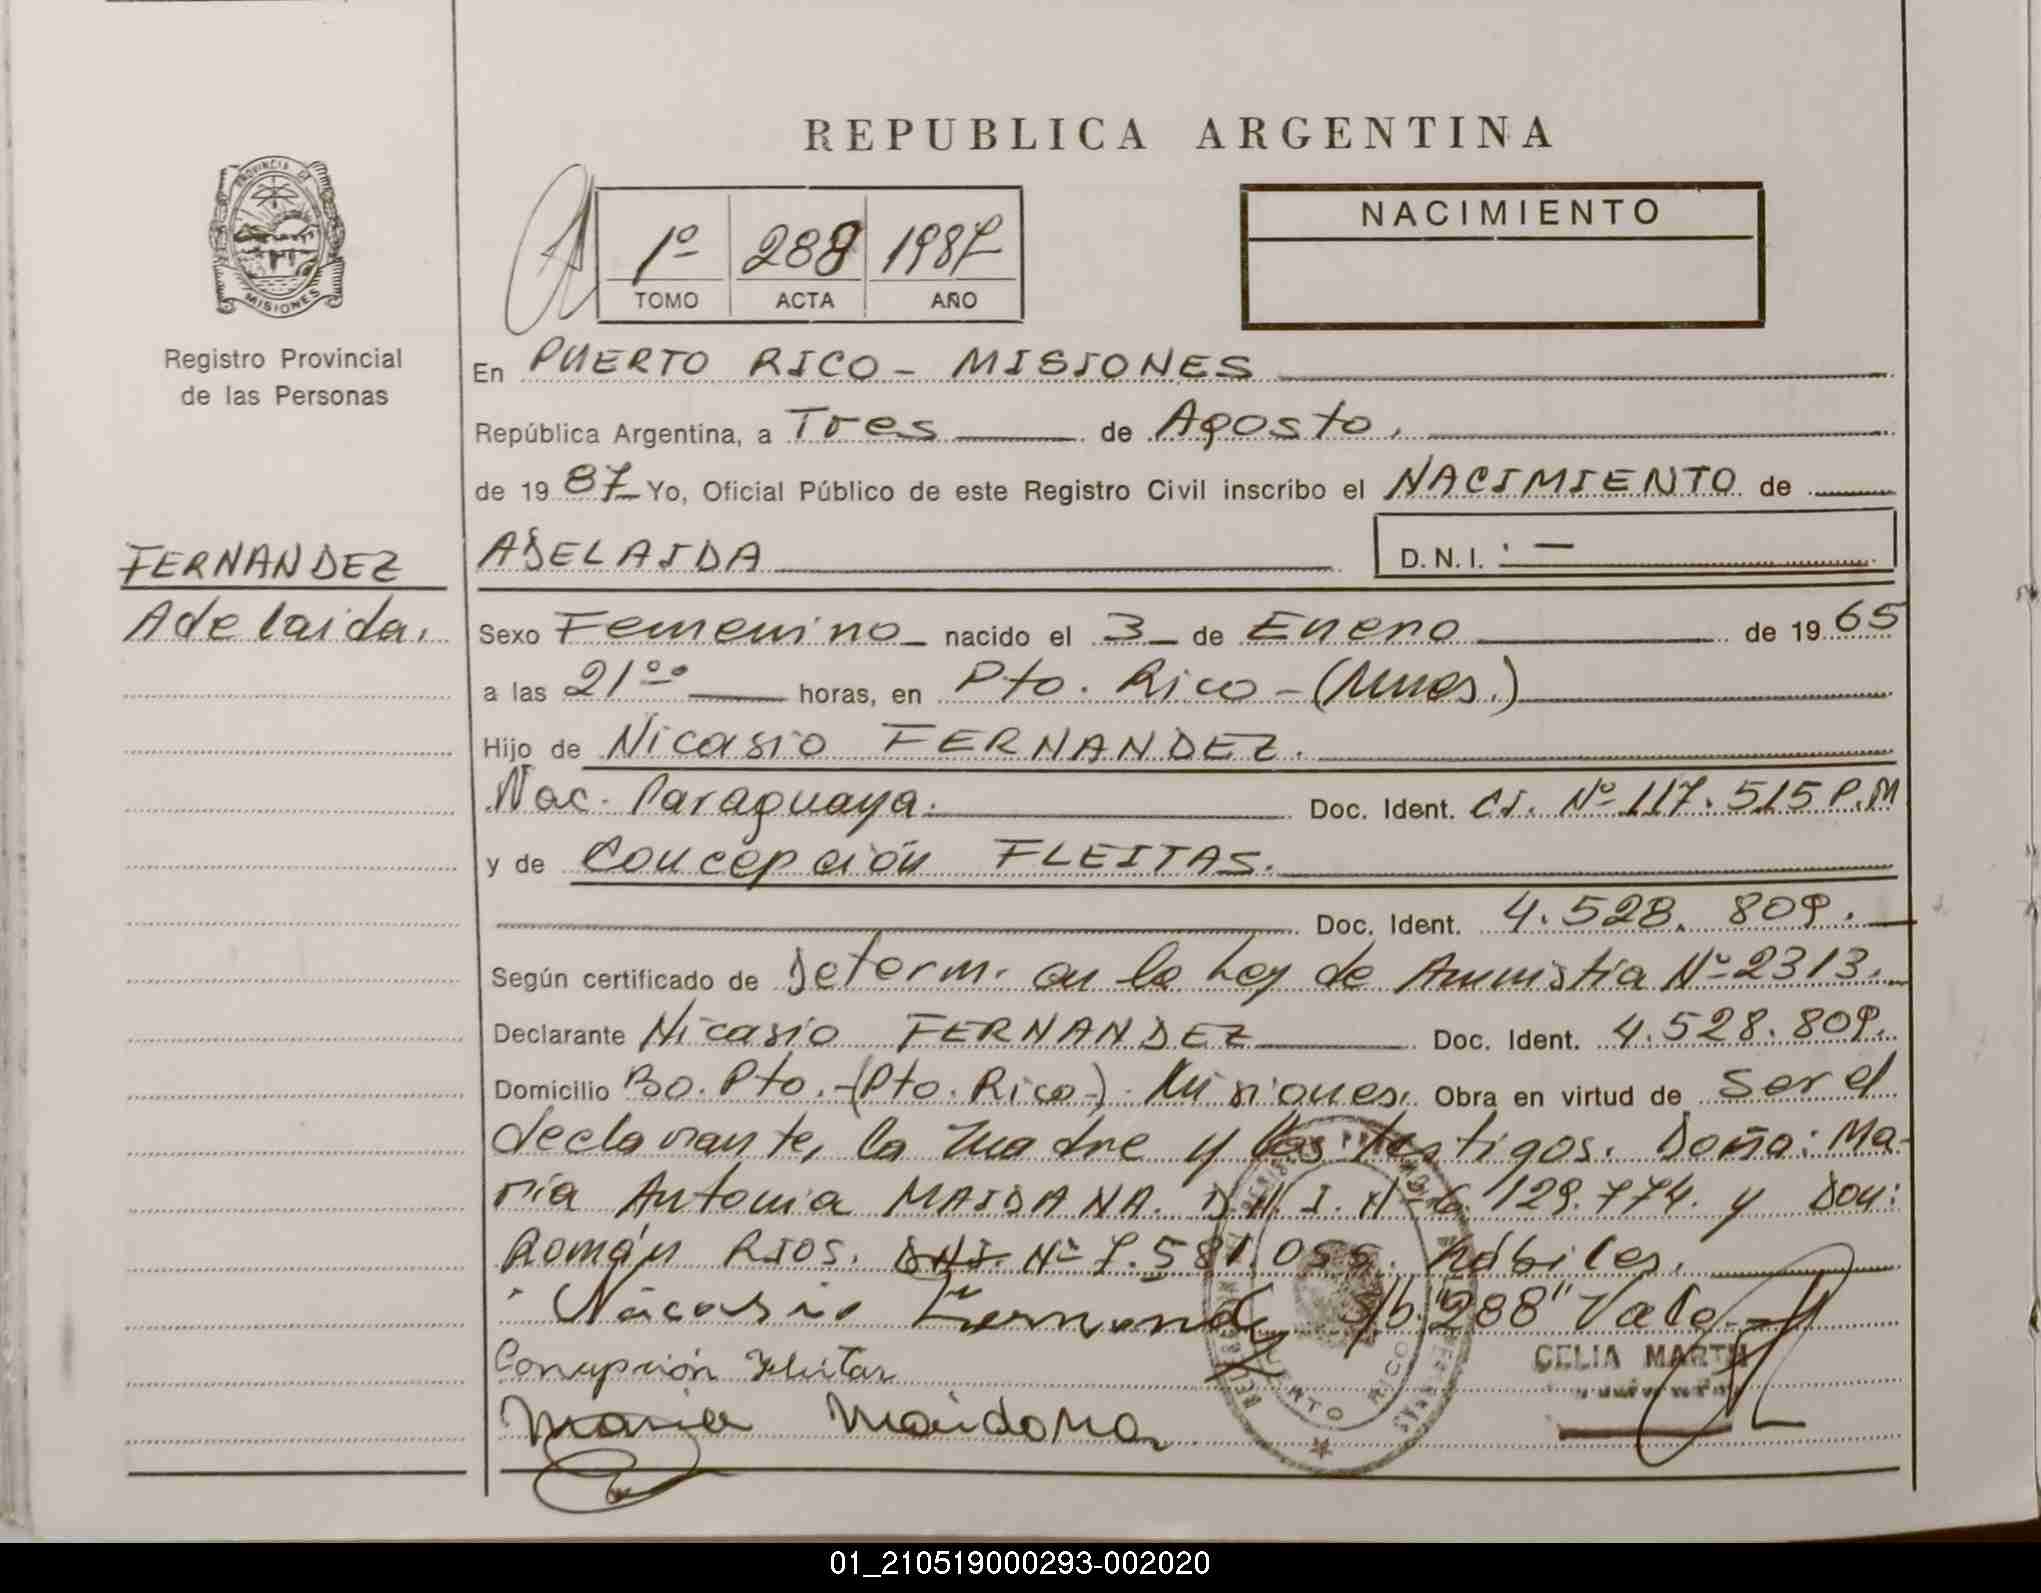 REPUBLICA ARGENTINA
PROVINCIA DE
MISIONES
Registro Provincial
de las Personas
1º 288 1987
TOMO ACTA AÑO
NACIMIENTO
En PUERTO RICO - MISIONES
República Argentina, a Tres de Agosto.
de 1987 Yo, Oficial Público de este Registro Civil inscribo el NACIMIENTO de
FERNANDEZ
Adelaida.
ADELAIDA D.N.I. : —
Sexo Femenino nacido el 3 de Enero de 1965
a las 21ºº horas, en Pto. Rico - (Mnes.)
Hijo de Nicasio FERNANDEZ.
Nac. Paraguaya. Doc. Ident. CI. Nº 117.515 P.M
y de Concepción FLEITAS.
Doc. Ident. 4.528.809.
Según certificado de Determ. en la Ley de Amnistia Nº 2313.
Declarante Nicasio FERNANDEZ Doc. Ident. 4.528.809.
Domicilio Bo. Pto. - (Pto. Rico) - Misiones. Obra en virtud de Ser el
declarante, la madre y los testigos. Doña: Ma-
ria Antonia MAIDANA. D.N.I. Nº 6.129.774. y Don:
Román RIOS. DNI. Nº 7.581.055. hábiles.
Nicasio S/b "288" Vale
Concepción Fleitas
CELIA
Maria Maidana
PUERTO RICO
01_210519000293-002020